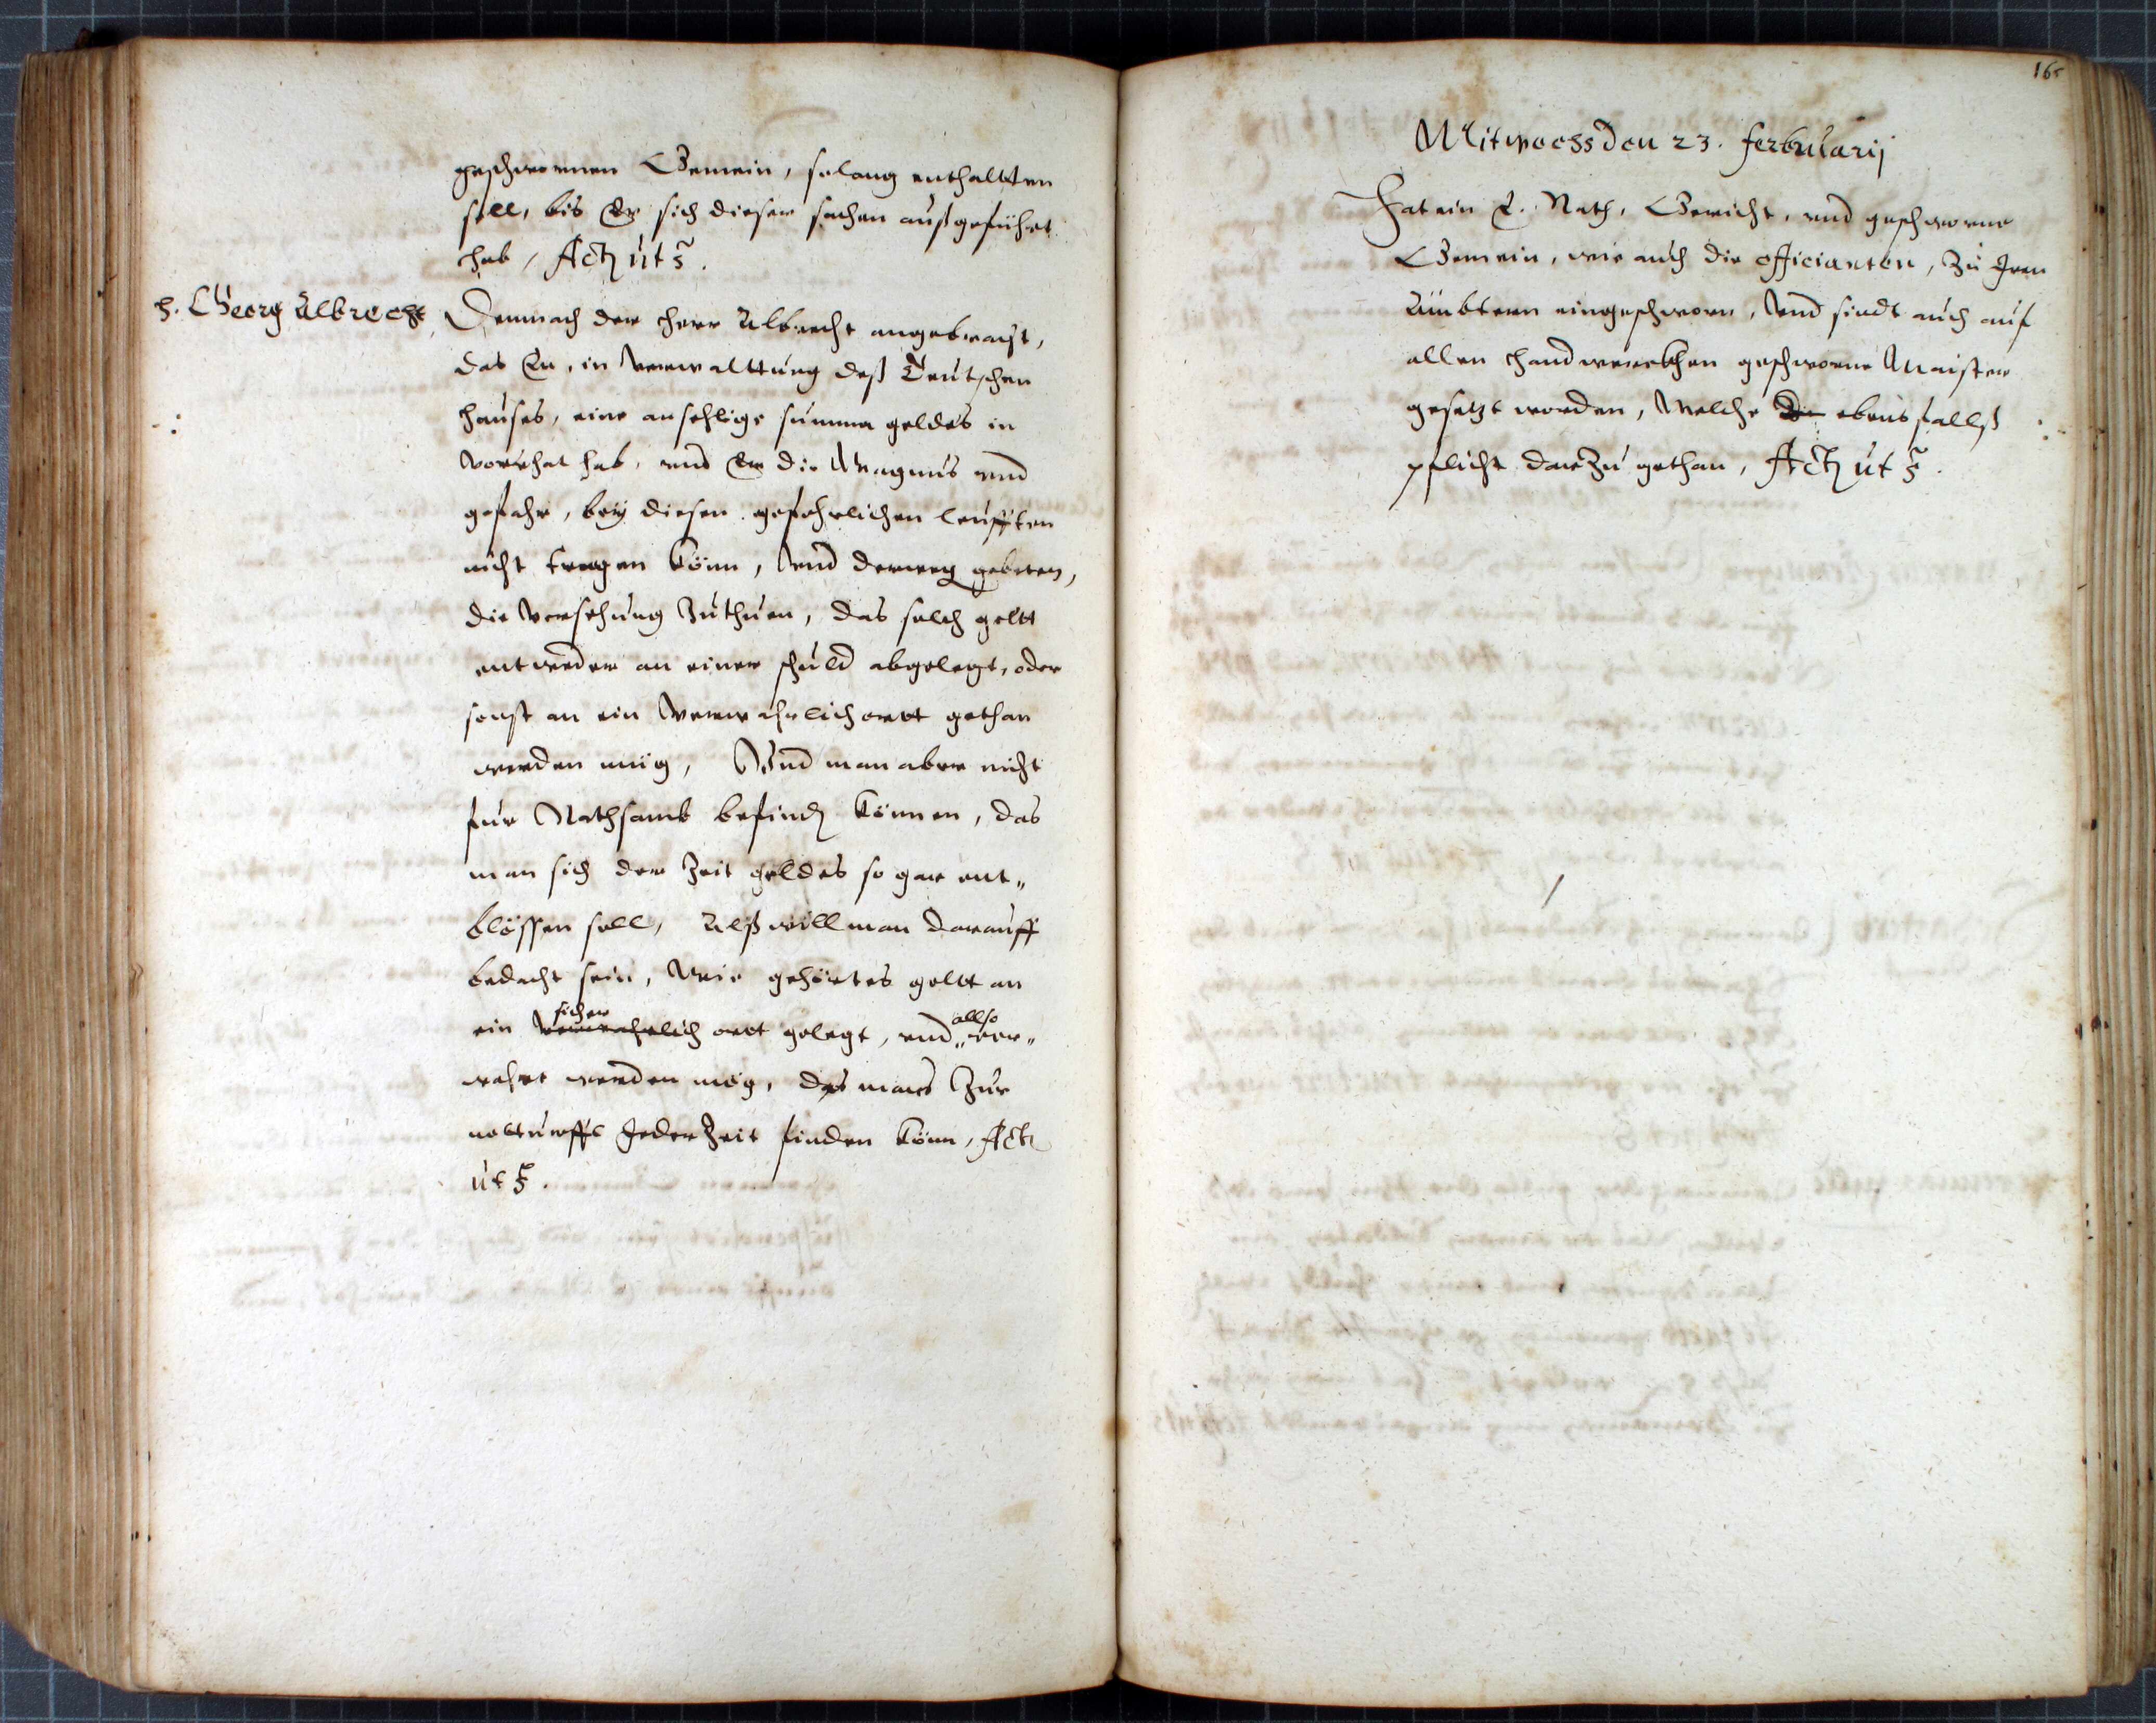 geschwornen Gemein, solang enthaltten
soll, bis Er sich dieser sachen außgeführt
hab, Actũ ut s̃.
H. Georg Albrecht
Demnach der Herr Albrecht angebracht,
das Er, in verwalttung deß Teutschen
hauses, eine ansehlige summa geldes in
vorrhat hab, und Er die Wagnus und
gefahr, bey diesen gefehrlichen leufften
nicht tragen könn, Und derweg gebeten,
die versehung zuthuen, das solch geltt
entweder an einer schuld abgelegt, oder
sonst an ein verwahrlich ortt gethan
werden müg, Und man aber nicht
fur Rathsamb befindẽ können, das
man sich der Zeit geldes so gar ent„
blössen soll, Alß will man darauff
bedacht sein, wie gehörtes geltt an
sicher allso
ein verwahrlich ortt gelegt, und „ver„
wahrt werden mög, das mans Zur
notturfft JederZeit finden könn, Actũ
ut s̃.
16
Mitwochs den 23. Ferbruarij
Hat ein E. Rath, Gericht, und geschworne
Gemein, wie auch die officianten, Zu Jren
Ämbtern eingeschworn, Und sindt auch auf
allen Handwerckhen geschworne Maister
gesetzt worden, Welche die ebensfallß
pflicht darZu gethan, Actũ ut s̃.